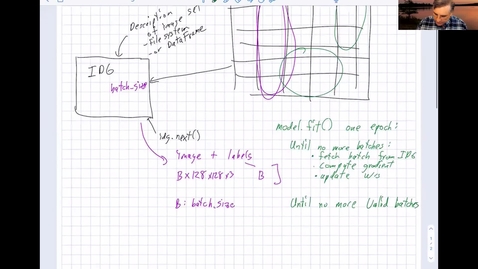 Description
of image set
- file system
- or DataFrame
IDG
batch_size
idg.next()
image + labels
B x 128 x 128 x 3 B
B: batch_size
model.fit() one epoch:
Until no more batches:
• fetch batch from IDG
• compute gradient
• update w's
Until no more Valid batches